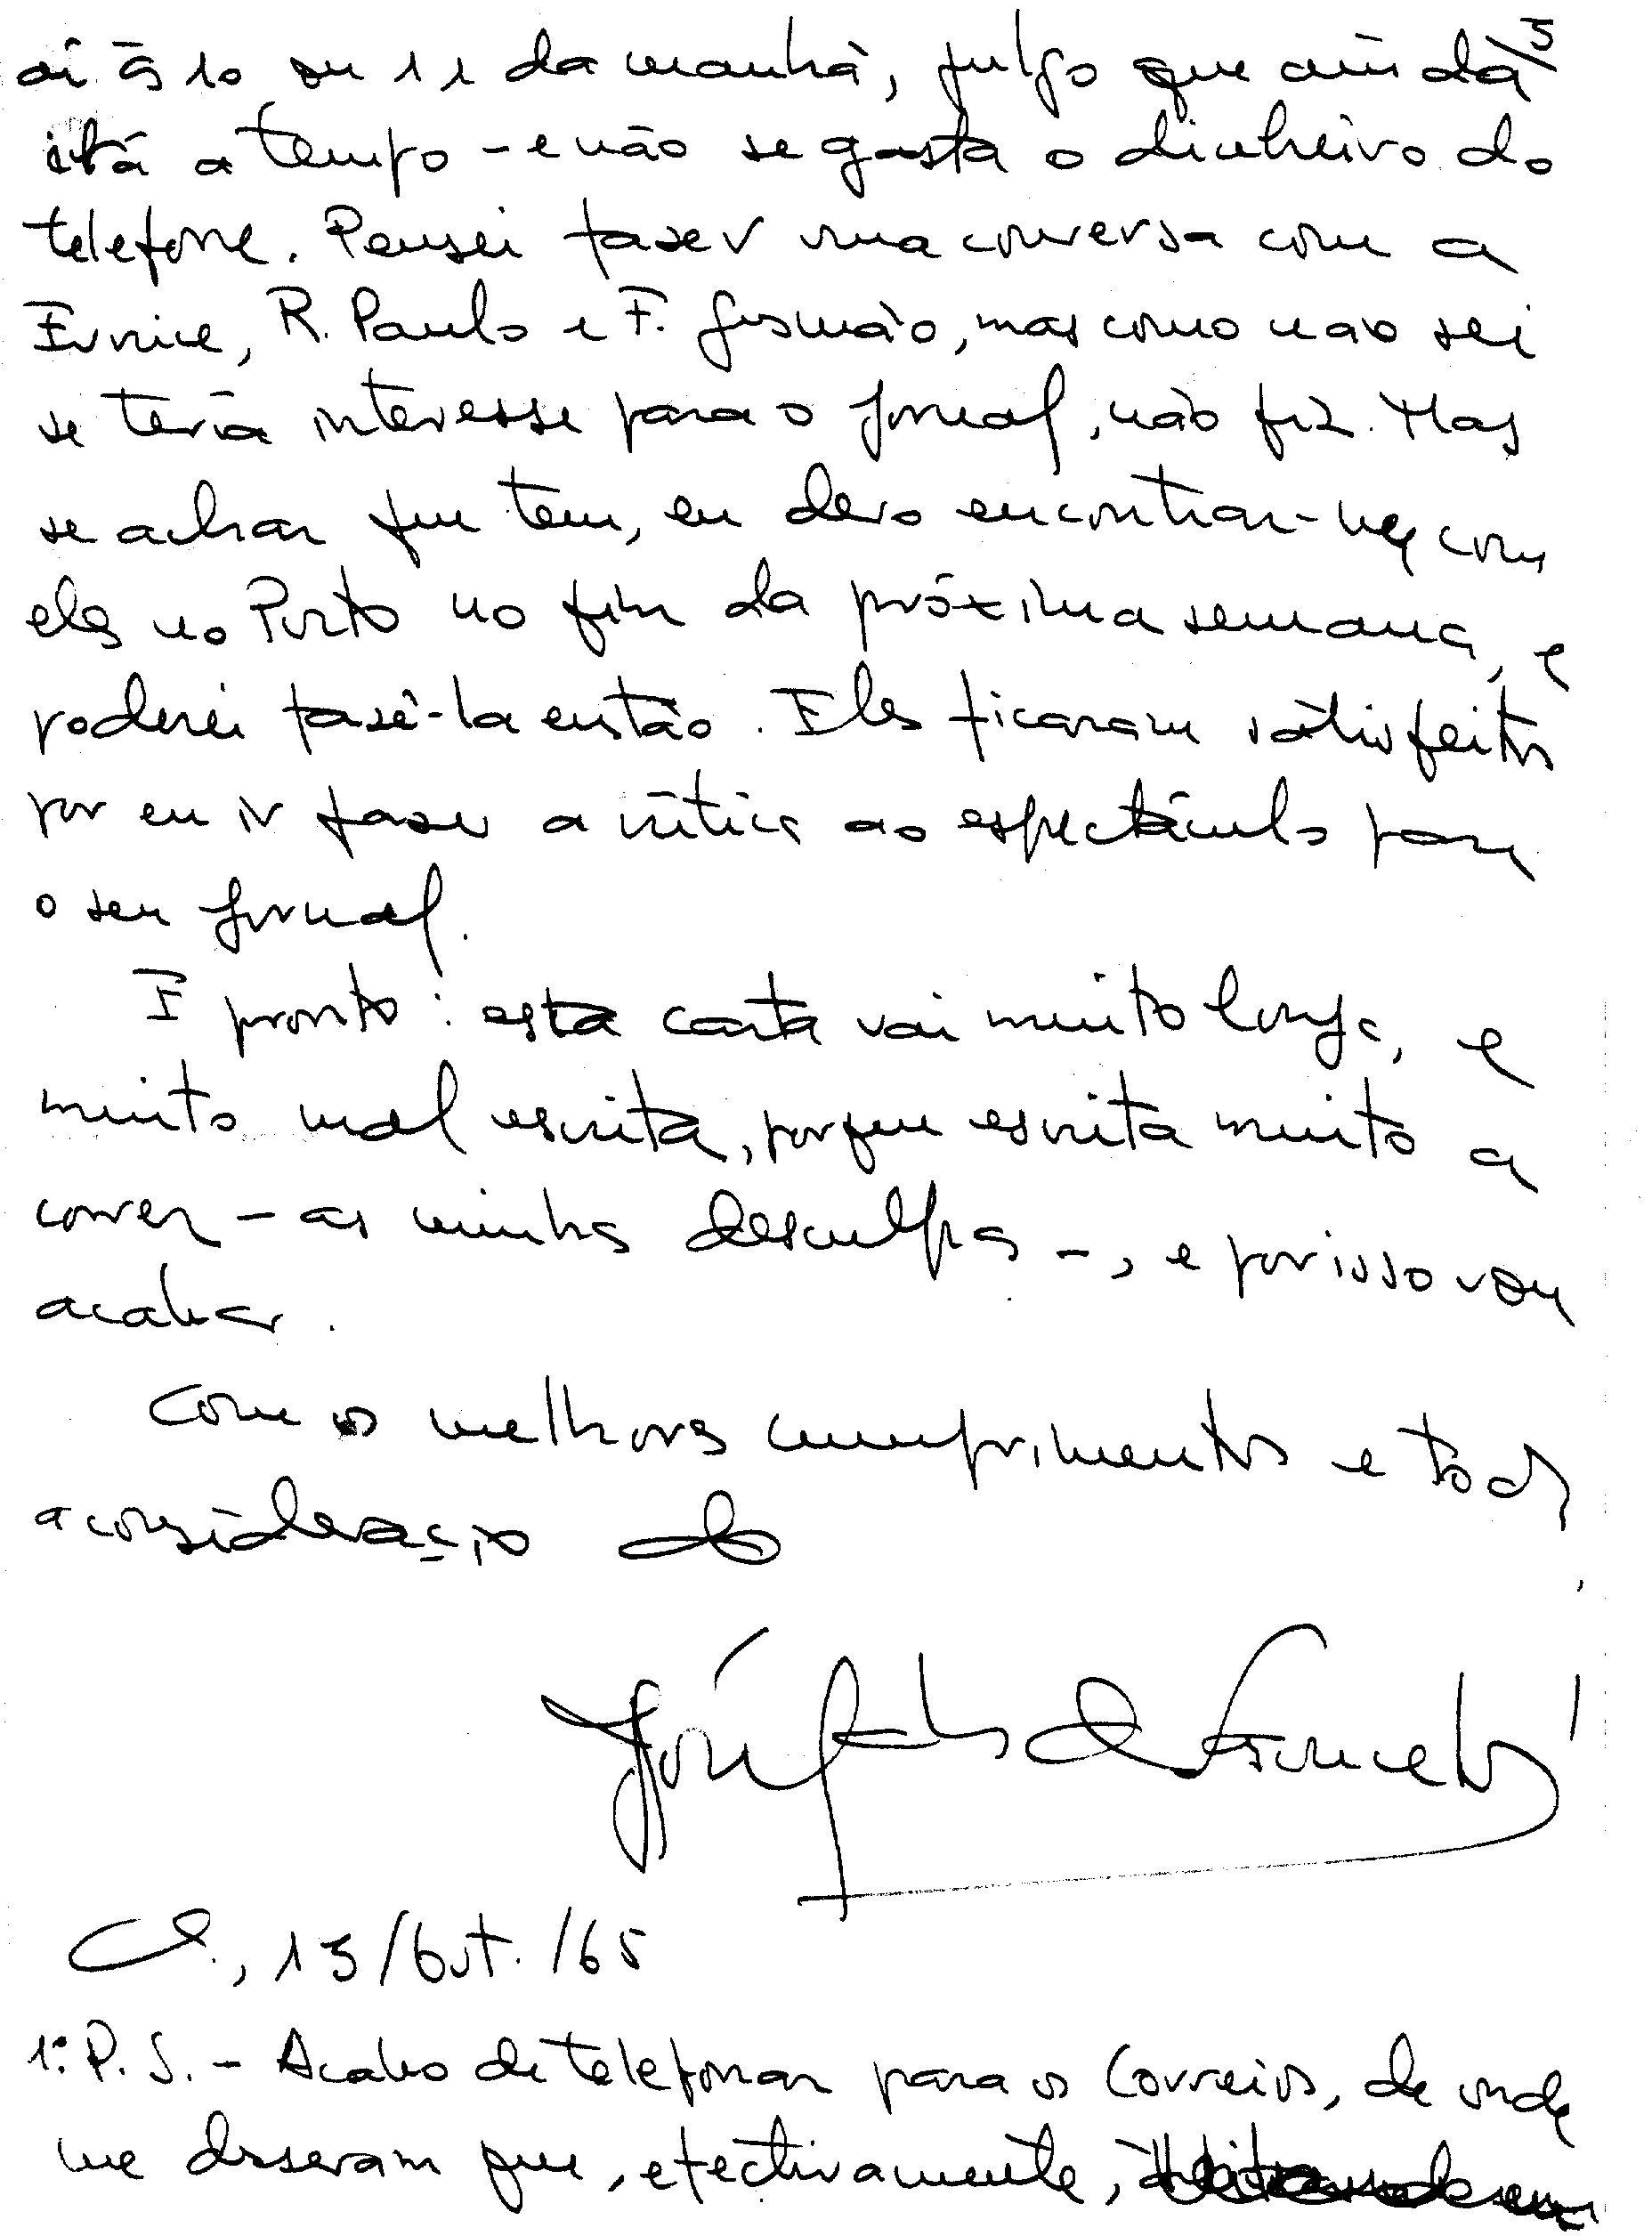 5
aí às 10 ou 11 da manhã, julgo que ainda
está a tempo - e não se gasta o dinheiro do
telefone. Pensei fazer uma conversa com a
Eunice, R. Paulo e F. Gusmão, mas como não sei
se teria interesse para o jornal, não fiz. Mas
se achar que tem, eu devo encontrar-me com
eles no Porto no fim da próxima semana, e
poderei fazê-la então. Eles ficaram satisfeitos
por eu ir fazer a crítica ao espectáculo para
o seu jornal.
E pronto: esta carta vai muito longa, e
muito mal escrita, porque escrita muito a
correr - as minhas desculpas -, e por isso vou
acabar.
Com os melhores cumprimentos e toda
a consideração do
José Carlos de Vasconcelos
C., 13/Out./65
1.º P.S. - Acabo de telefonar para os Correios, de onde
me disseram que, efectivamente,